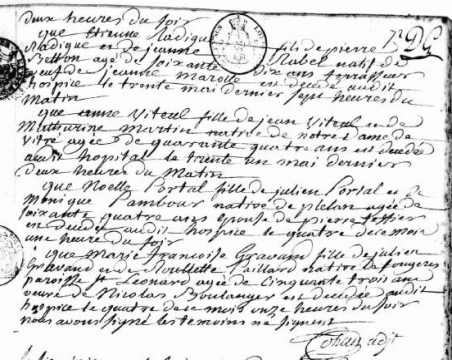 deux heures du soir
que Etienne Radigue fils de pierre
Radigue et de jeanne Rabel natif de
agé de soixante dix ans terrasseur
veuf de jeanne Marolle est decedé audit
hospice le trente mai dernier sept heures du
Matin
que anne Viteul fille de jean Viteul et de
Mathurine Martin native de notre dame de
Vitre agée de quarante quatre ans est decedée
audit hopital le trente un mai dernier
deux heures du Matin
que Noelle Portal fille de julien Portal et de
Monique Pambour native de plelan agée de
soixante quatre ans epouse de pierre teffier
est decedée audit hospice le quatre de ce mois
une heure du soir
que Marie francoise Gravand fille de julien
Gravand et de Noullette Paillard native de fougeres
paroisse st Leonard agée de Cinquante trois ans
veuve de Nicolas Boulanger est decedée audit
hospice le quatre de ce mois onze heures du soir
nous avons signé les temoins ne signent
adjt